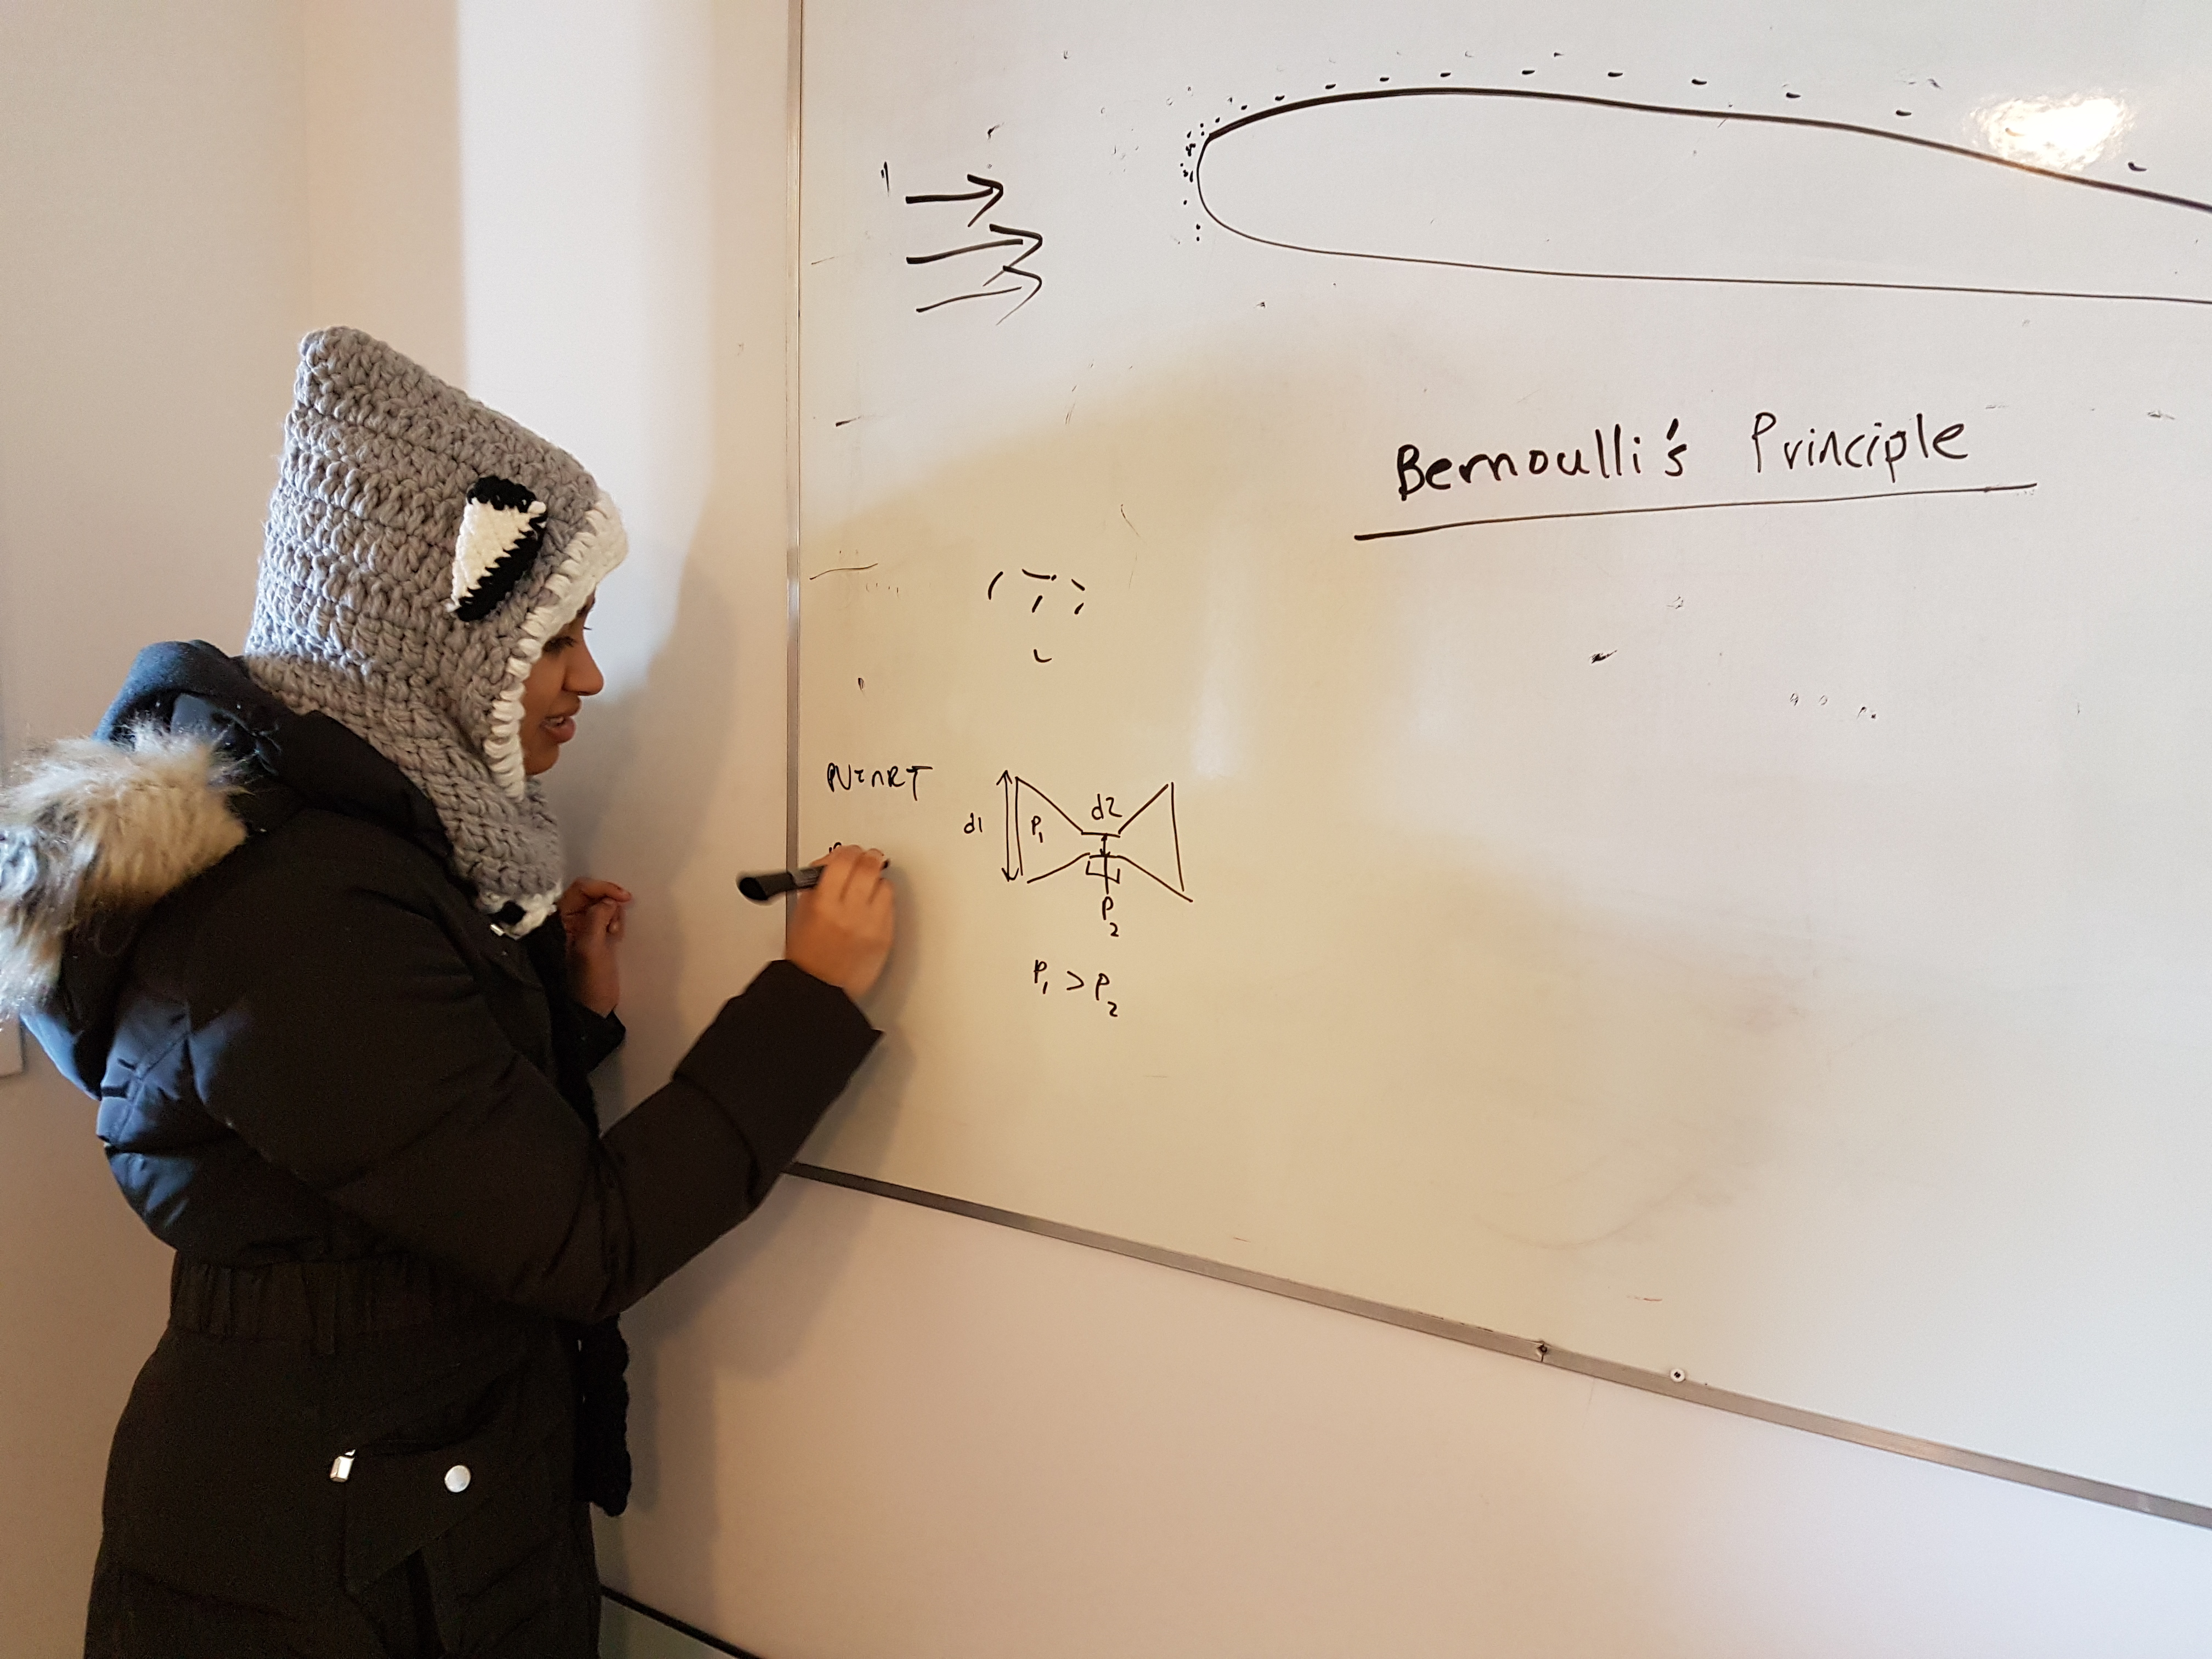 Bernoulli's Principle
PV=nRT
d1
P1
d2
P2
P1 > P2